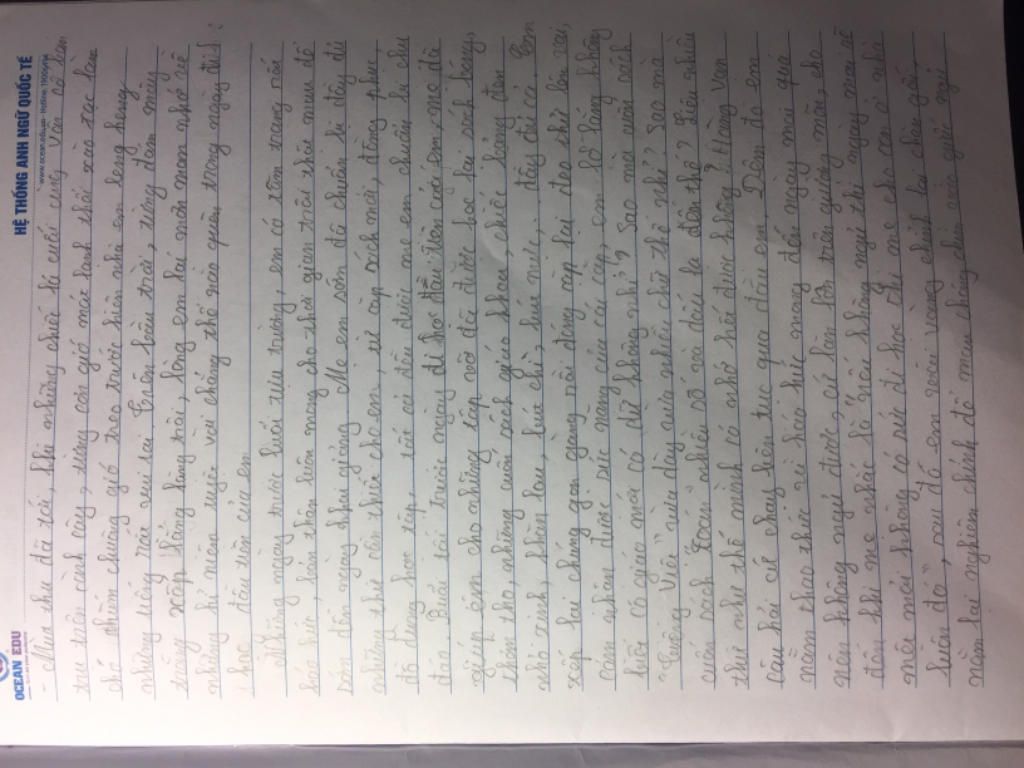 OCEAN EDU
HỆ THỐNG ANH NGỮ QUỐC TẾ
- Mùa thu đã tới, khi những chiếc lá cuối cùng vẫn cố han
tau trên cành cây, từng cơn gió mát lành thổi xào xạc làm
chó chuồn chuông gió treo trước hiên nhà em leng keng
những tiếng rất vui tai. Trên bầu trời, từng đám mây
trắng xốp bồng lang trôi, lòng em lại mơn man nhớ về
những kỉ niệm tuyệt vời không thể nào quên trong ngày đi
học đầu tiên của em
Những ngày trước buổi tựu trường, em có tâm trạng rất
háo hức, bản thân luôn mong cho thời gian trôi thật mau để
sớm đến ngày khai giảng. Mẹ em sớm đã chuẩn bị đầy đủ
những thứ cần thiết cho em, từ cặp sách mới, đồng phục
đồ dùng học tập, tất cả đều được mẹ em chuẩn bị chu
đáo. Buổi tối trước ngày đi học đầu tiên của em, mẹ đã
giúp em cho những tập vở đã được bọc lại sách bóng,
thơm tho, những cuốn sách giáo khoa, chiếc bảng đen
nhỏ xinh, khăn lau, bút chì, bút mực,... đầy đủ cả. Em
xếp lại chúng gọn gàng rồi đóng cặp lại đeo thử lên vai,
cảm nhận được sức nặng của cái cặp, em lo lắng không
biết cô giáo mới có dữ không nhỉ? Sao mà cuốn sách
"Tiếng Việt" vừa dày vừa nhiều chữ thế nhỉ? Sao mà
cuốn sách Toán nhiều số và dấu lạ đến thế? Liệu nhiều
thứ như thế mình có nhớ hết được không? Hàng vạn
câu hỏi cứ chạy liên tục qua đầu em. Đêm đó em
nằm thao thức vì háo hức mong đến ngày mai quá
nên không ngủ được, cứ lăn lộn trên giường mãi, cho
đến khi mẹ nhắc là nếu không ngủ thì ngày mai sẽ
mệt mỏi không có sức đi học thì mẹ cho con ở nhà
luôn đó", sau đó em vội vàng chỉnh lại chăn gối,
nằm lại nghiêm chỉnh để mau chóng chìm vào giấc ngủ